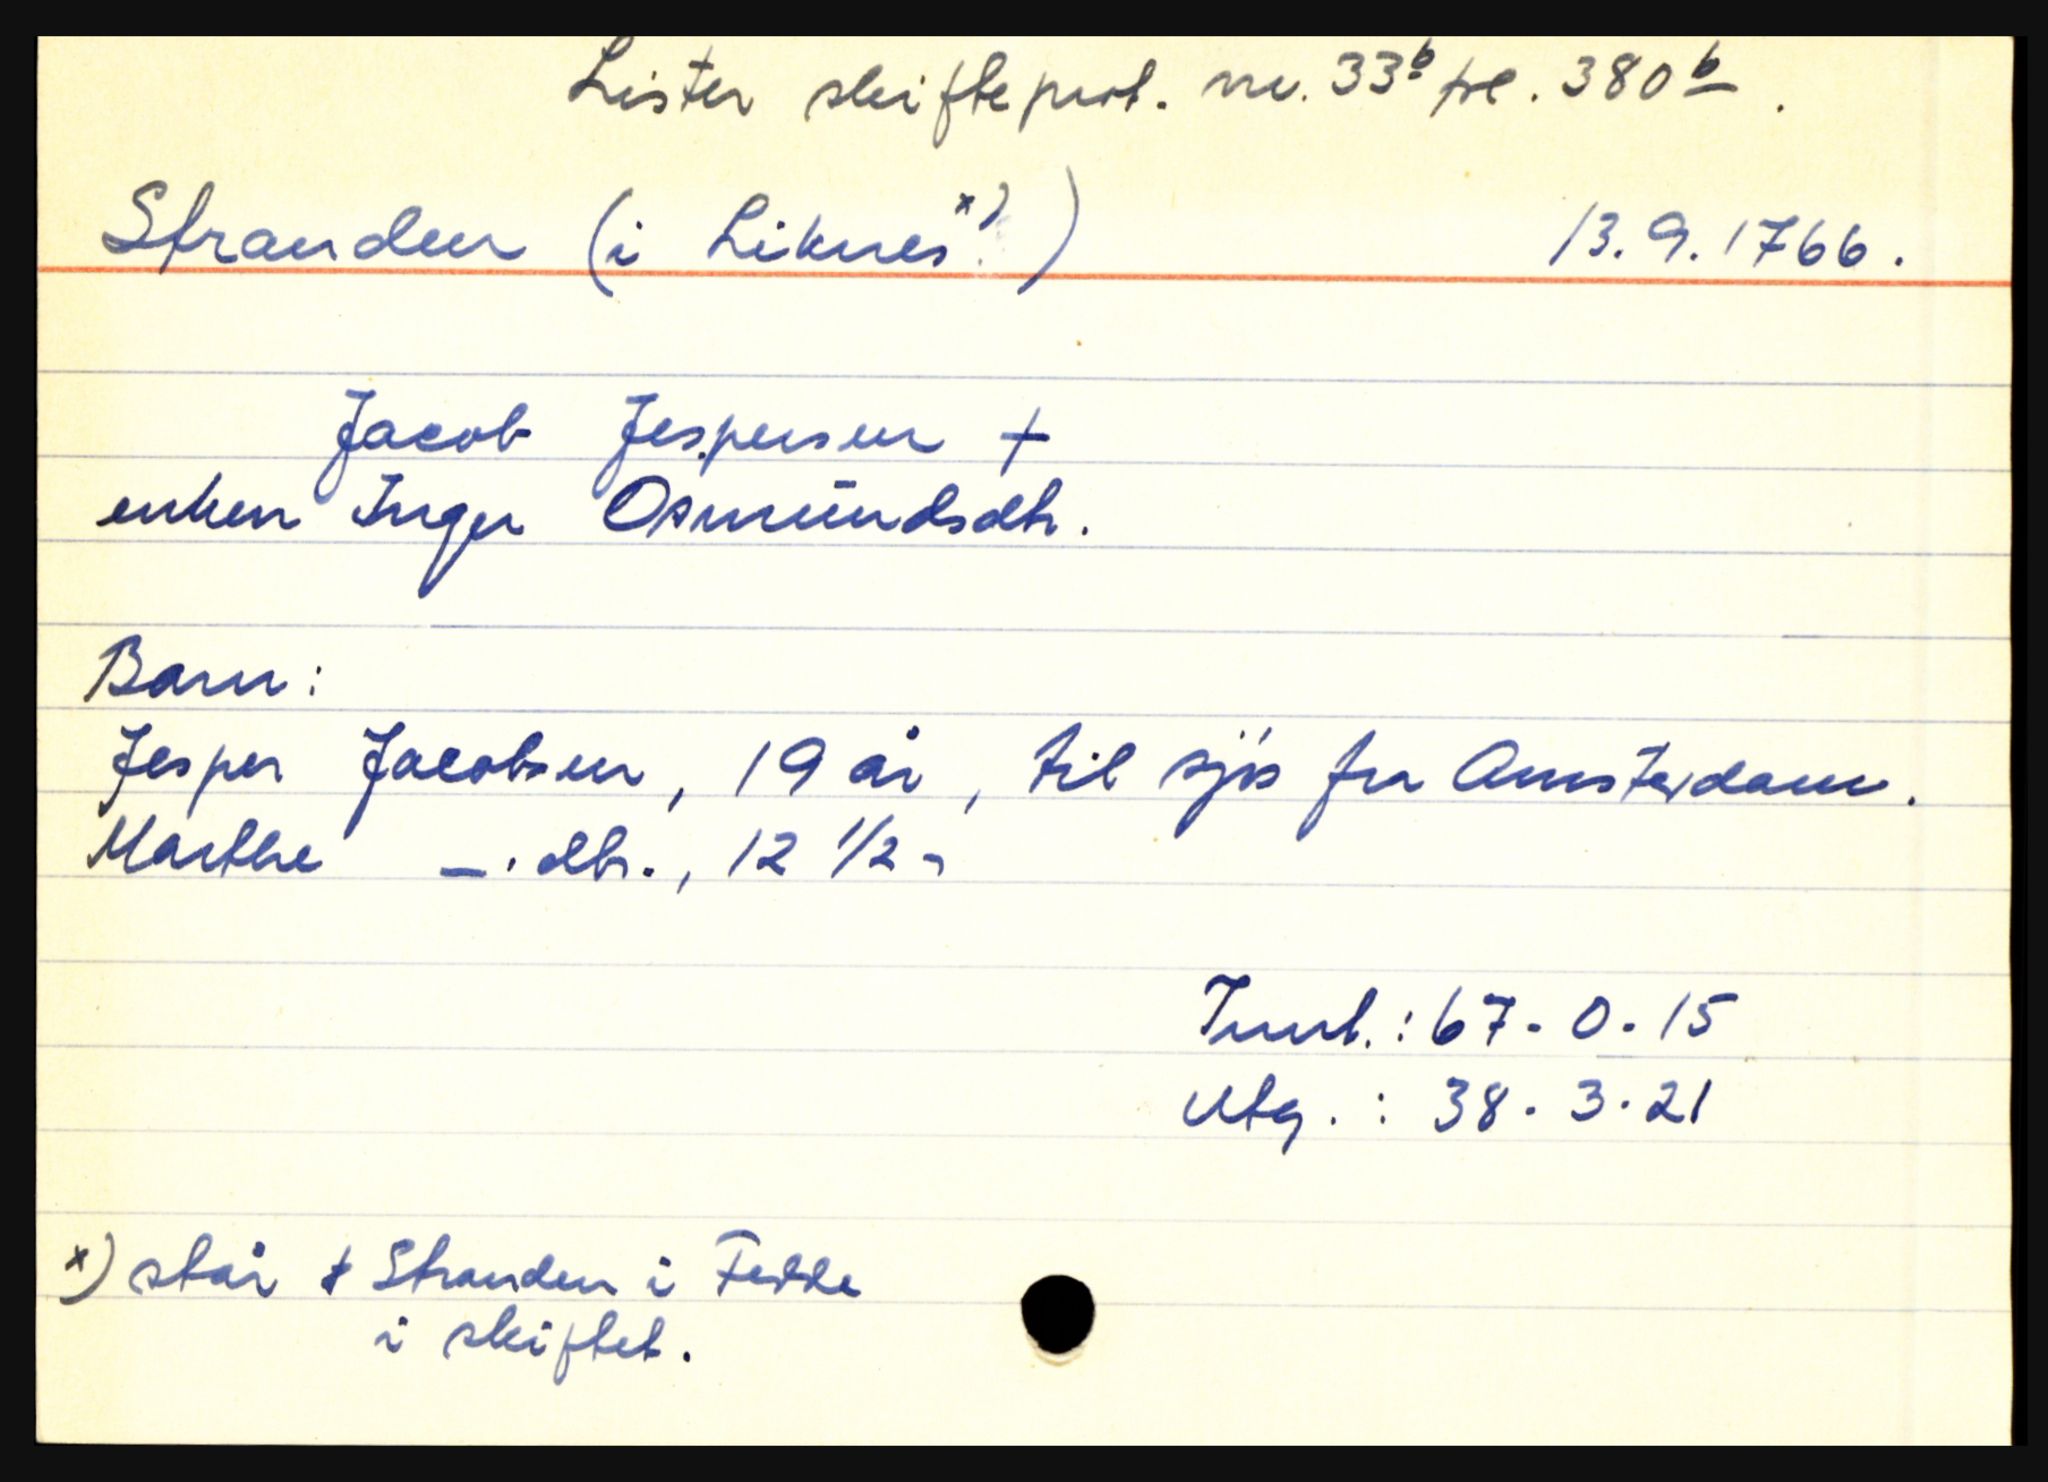 Lister skifteprot. nr. 33b fol. 380b.
Stranden (i Liknes x) ) 13.9.1766.
Jacob Jespersen +
enken Inger Osmundsdtr.
Barn:
Jesper Jacobsen, 19 år, til sjøs fra Amsterdam.
Marthe —"— dtr., 12 1/2 "
Innt.: 67-0-15
Utg.: 38-3-21
x) står Stranden i Fedde
i skiftet.